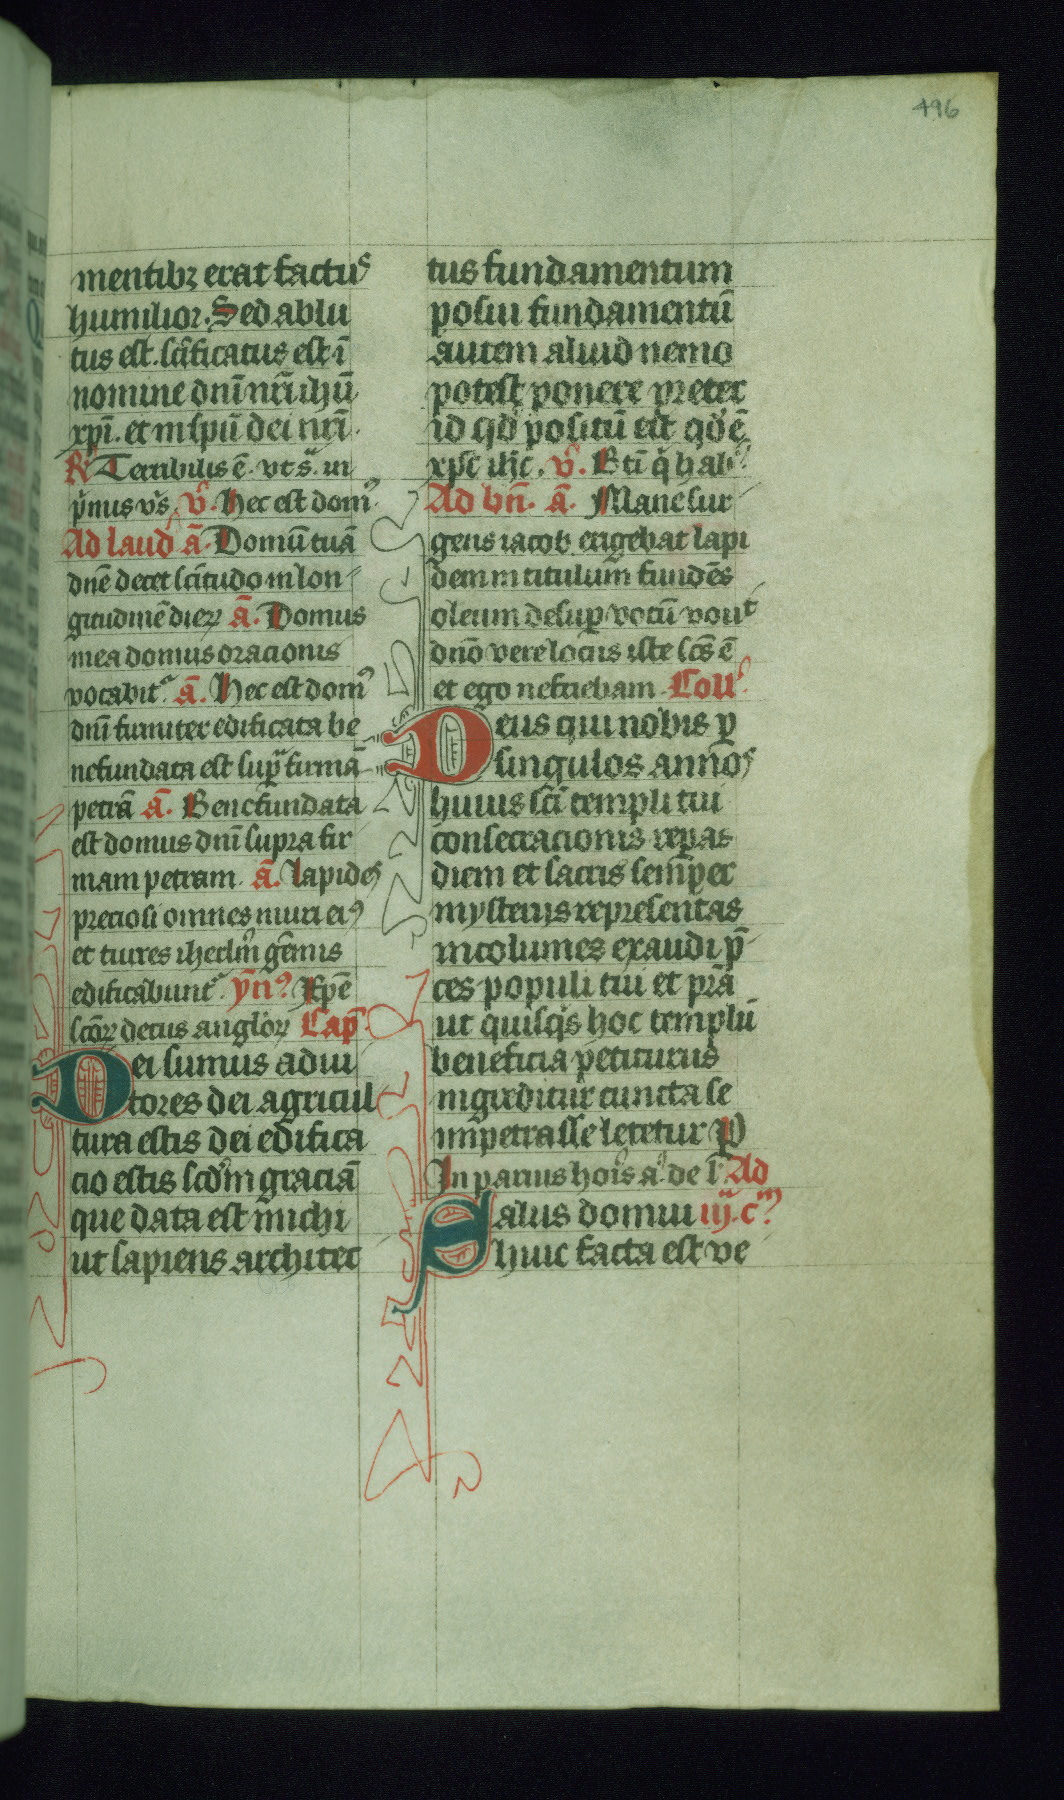 496
mentibꝫ erat factus
humilior. Sed ablu
tus est. scīficatus est ī
nomine dnī nrī ihū
xpī. et in spū dei nrī.
R̄ Terribilis ē. vt sͣ. in
p̄mis vs̄. v̄. Hec est domꝰ
Ad laud ā. Domū tuā
dnē decet scītudo in lon
gitudinē dieꝝ ā. Domus
mea domus oracionis
vocabitͬ ā. Hec est domꝰ
dnī firmiter edificata be
ne fundata est supͣ firmā
petrā ā. Bene fundata
est domus dnī supra fir
mam petram. ā. lapides
preciosi omnes muri eiꝰ
et turres iherlm̄ gēmis
edificabuntͬ. ymꝰ Xpē
scōꝝ decus angloꝝ Cap̄.
Dei sumus adiu
tores dei agricul
tura estis dei edifica
cio estis scd̄m graciā
que data est michi
ut sapiens architec
tus fundamentum
posui fundamentū
autem aliud nemo
potest ponere preter
id qd̄ positū est qd̄ ē
xpc ihc. v̄. Bti q̄ hab
Ad bn̄. ā. Mane sur
gens iacob erigebat lapi
dem in titulum fundēs
oleum desuꝑ votū vouͭ
dnō vere locus iste scs̄ ē
et ego nesciebam. Coll̄.
Deus qui nobis ꝑ
singulos annos
huius scī templi tui
consecracionis reꝑas
diem et sacris semper
mysterijs representas
incolumes exaudi p̄
ces populi tui et pr̄a
ut quisqͥs hoc templū
beneficia petiturus
ingreditur cuncta se
impetrasse letetur P
In paruis hoīs ā de l̄. Ad
Salus domui iij. cͫꝰ
huic facta est ve